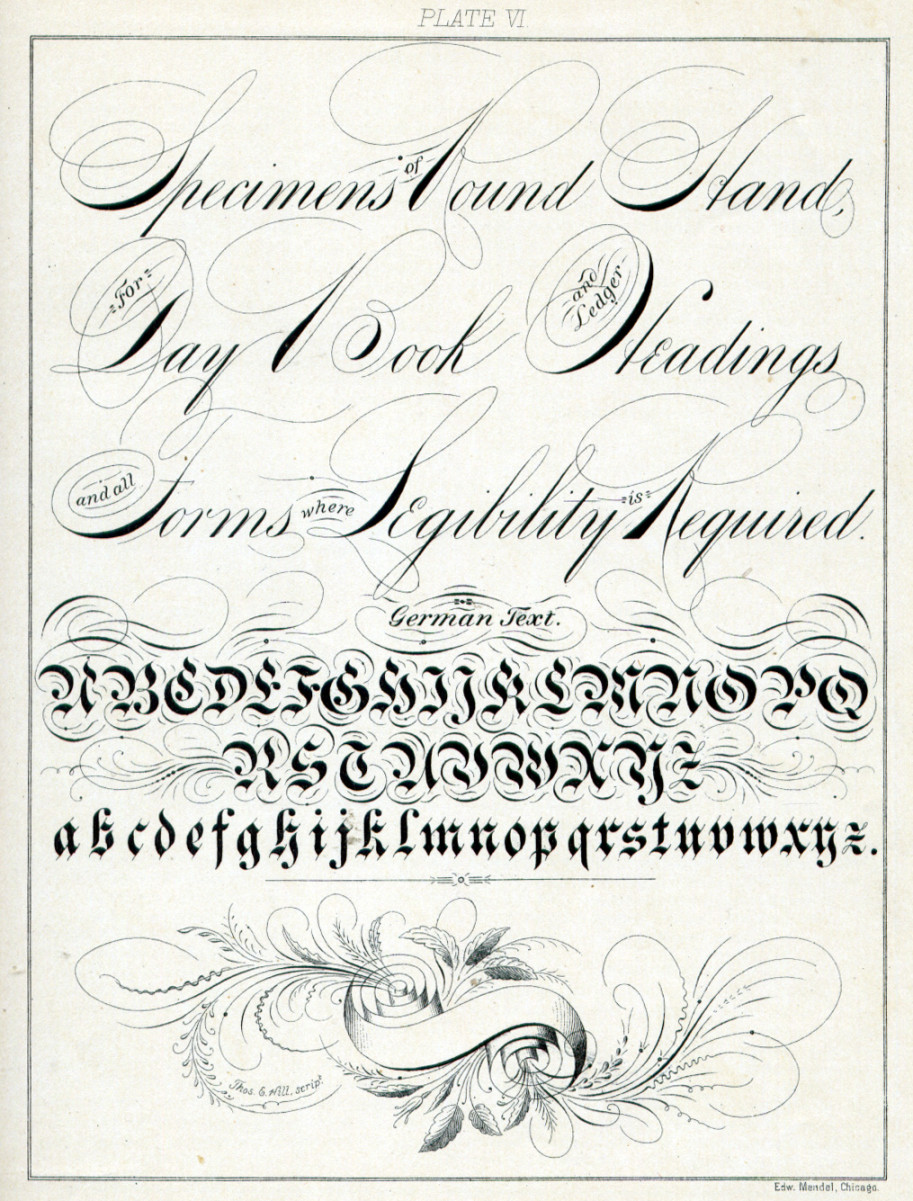 PLATE VI.
Specimens of Round Hand,
For Day Book and Ledger Headings
and all Forms where Legibility is Required.
German Text.
A B C D E F G H I J K L M N O P Q
R S T U V W X Y Z
a b c d e f g h i j k l m n o p q r s t u v w x y z.
Thos. E. Hill, script.
Edw. Mendel, Chicago.